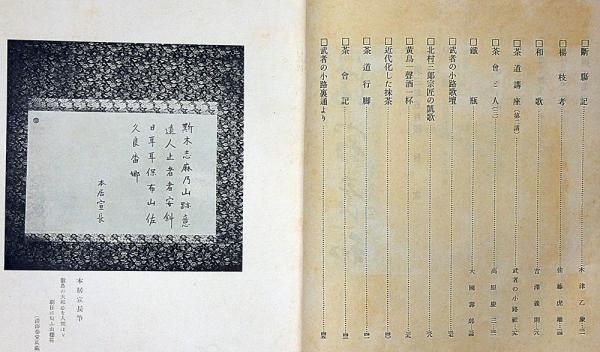 □斷膓記
木津乙象
□楊枝考
佐藤虎雄
□和歌
吉澤義則
□茶道講座(第二講)
武者の小路
□茶會と人(二)
高原慶三
□鐵瓶
大國壽郎
□武者の小路歌壇
□北村三郎宗匠の凱歌
□黄鳥一聲酒一杯
□近代化した抹茶
□茶道行脚
□茶會記
□武者の小路裏通より
斯木志麻乃山跡意
遠人止者者安斜
日耳耳保布山佐
久良番娜
本居宣長
本居宣長筆
敷島の大和心を人問はゞ
朝日に匂ふ山櫻花